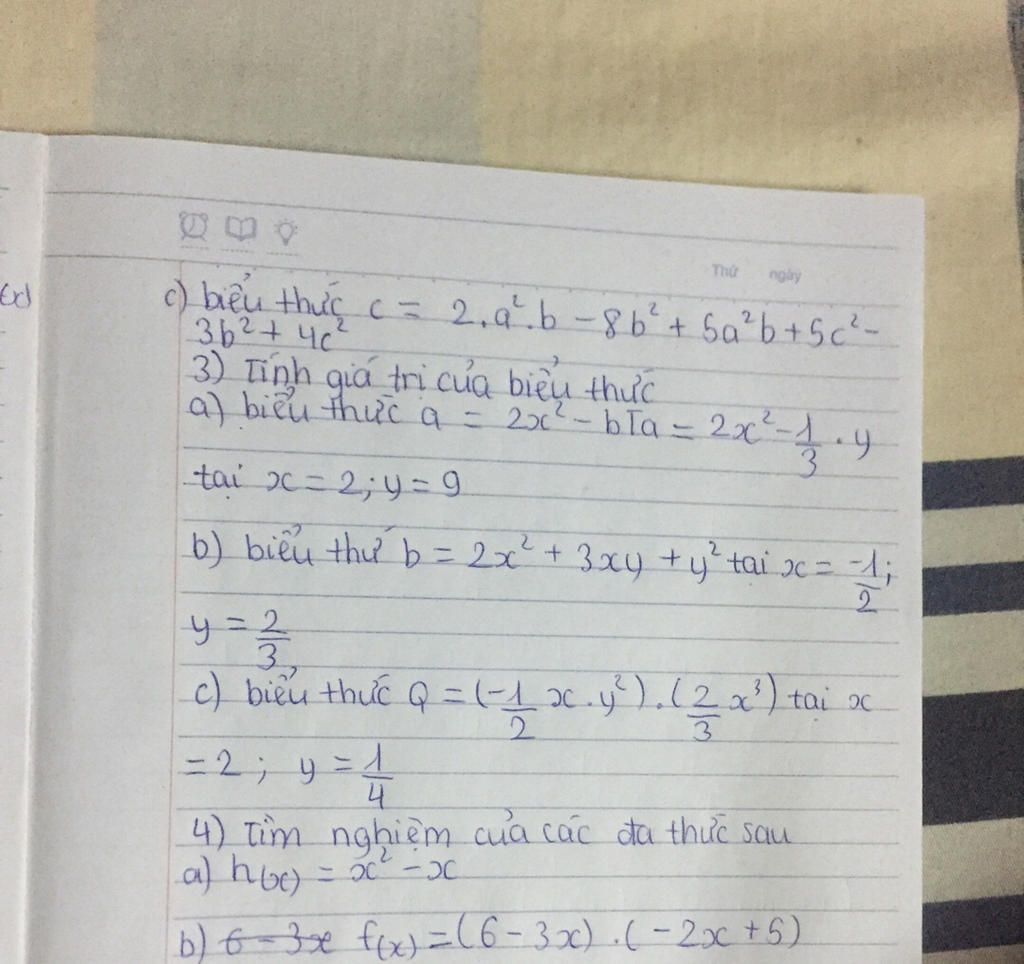 Thứ ngày
(x)
c) biểu thức c = 2.a².b - 8b² + 5a²b + 5c² -
3b² + 4c²
3) Tính giá trị của biểu thức
a) biểu thức a = 2x² - bTa = 2x² - 1/3 . y
tại x = 2; y = 9
b) biểu thứ b = 2x² + 3xy + y² tại x = -1/2;
y = 2/3
c) biểu thức Q = (-1/2 x . y²) . (2/3 x³) tại x
= 2 ; y = 1/4
4) Tìm nghiệm của các đa thức sau
a) h(x) = x² - x
b) 6 - 3x f(x) = (6 - 3x) . (-2x + 5)